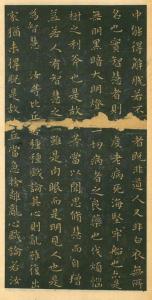 中能得解脫若不 者既道人又非白衣無所
名也實智慧者則 度老病死海堅牢船也亦是
無明黑暗大明燈 一切病者之良藥也伐煩惱
樹之利斧也是故 等當以聞思修慧而自增
益若人有智慧之 雖是肉眼而是明見人也是
為智慧 汝等比丘 種種戲論其心則亂雖復出
家猶未得脫是故 丘當急捨離亂心戲論若汝